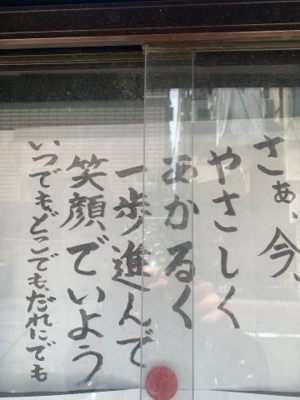 さぁ、今、
やさしく
あかるく
一歩進んで
笑顔でいよう
いつでも、どこでも、だれにでも